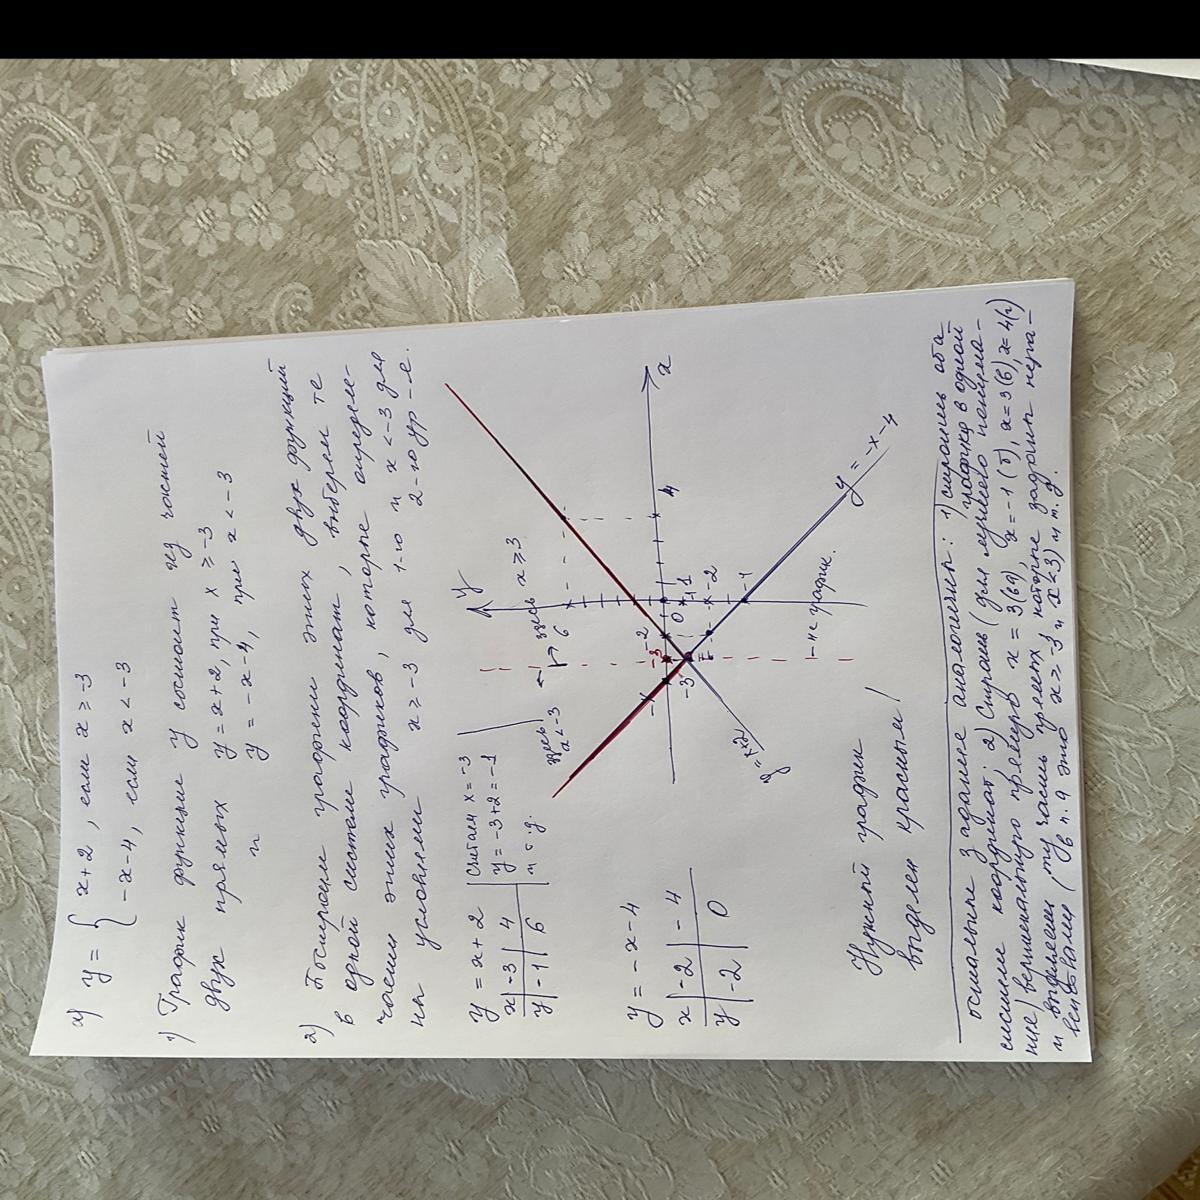 а) y = { x+2, если x ≥ -3
-x-4, если x < -3
1) График функции y состоит из частей
двух прямых y = x+2, при x ≥ -3
и y = -x-4, при x < -3
2) Построим графики этих двух функций
в одной системе координат, выберем те
части этих графиков, которые определе-
ны условиями x ≥ -3 для 1-го и x < -3 для
2-го ур-я.
y = x+2
x | -3 | 4
y | -1 | 6
Считаем x = -3
y = -3+2 = -1
и т.д.
y = -x-4
x | -2 | -4
y | -2 | 0
здесь
x < -3
здесь x ≥ 3
y
6
-3
-2
0
4
x
-1
-2
-3
y = x+2
y = -x-4
- не график.
Нужный график
выделен красным!
остальные задания аналогичны: 1) строишь оба
графика в одной
системе координат. 2) Строишь (для лучшего понима-
ния) вертикальную прямую x = 3 x = -1 (б), x = 3 (в), x = 4 (г)
и выделяем ту часть прямых которые заданы нера-
венствами (в п. а это x ≥ -3 и x < 3) и т.д.